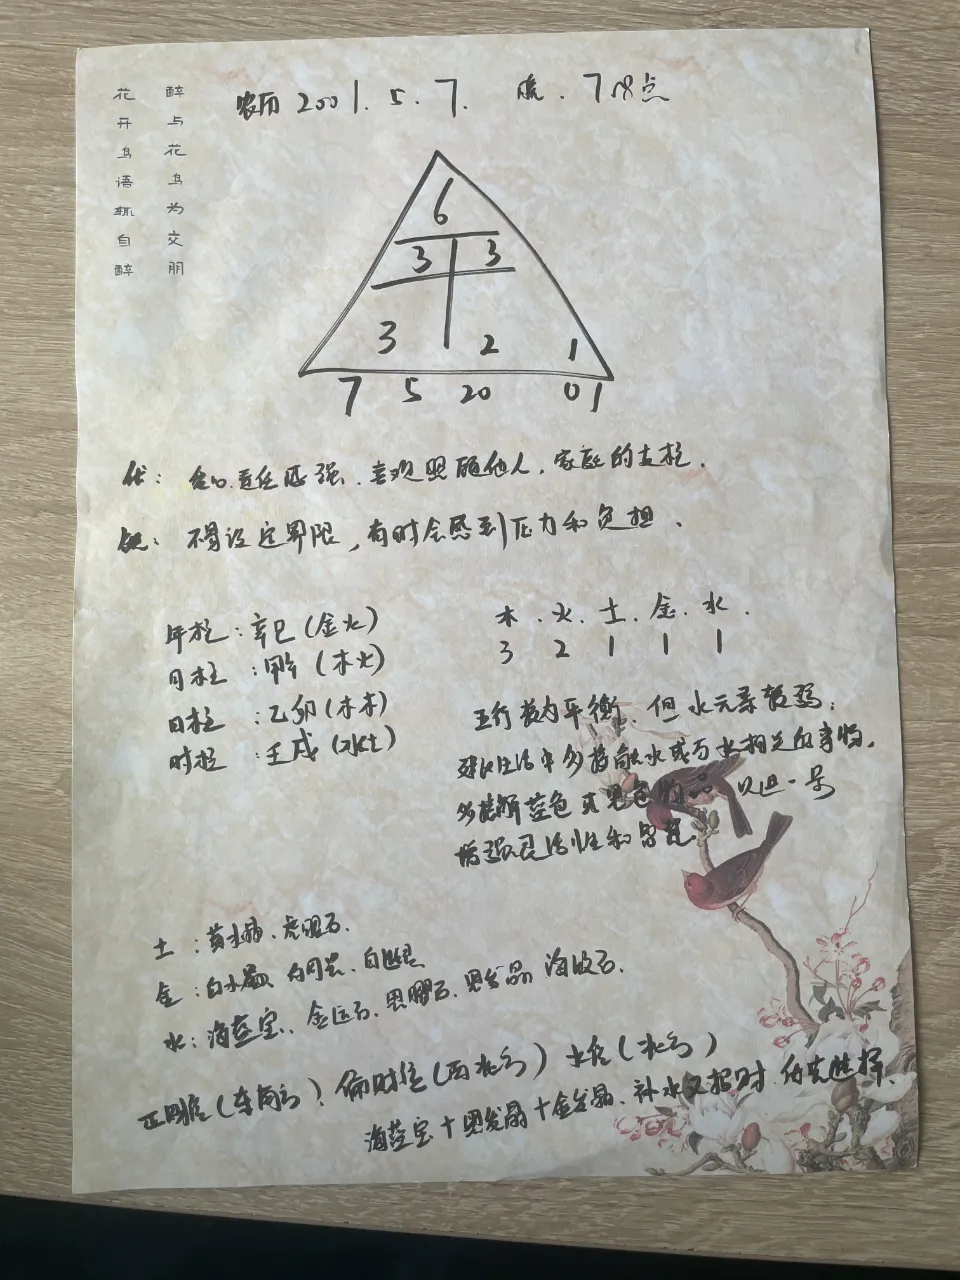 醉与花鸟为交朋
花开鸟语辄自醉
农历 2001. 5. 7. 点
6
3 3
3 2 1
7 5 20 01
优: 责任感强、喜欢照顾他人,家庭的支柱、
缺: 不易设定界限,有时会感到压力和负担、
年柱:辛巳(金火)
月柱:甲午(木火)
日柱:乙卯(木木)
时柱:壬戌(水土)
木、火、土、金、水、
3 2 1 1 1
五行较为平衡、但水元素较弱;
建议生活中多接触水或与水相关的事物,
多接触蓝色或黑色的
增强灵活性和
土:黄水晶、虎眼石、
金:白水晶、
水:海蓝宝、金运石、黑曜石、黑发晶、海纹石、
正财位(东南方)、偏财位(西北方) (北方)
海蓝宝+黑发晶+金发晶、补水又招财、优先选择、